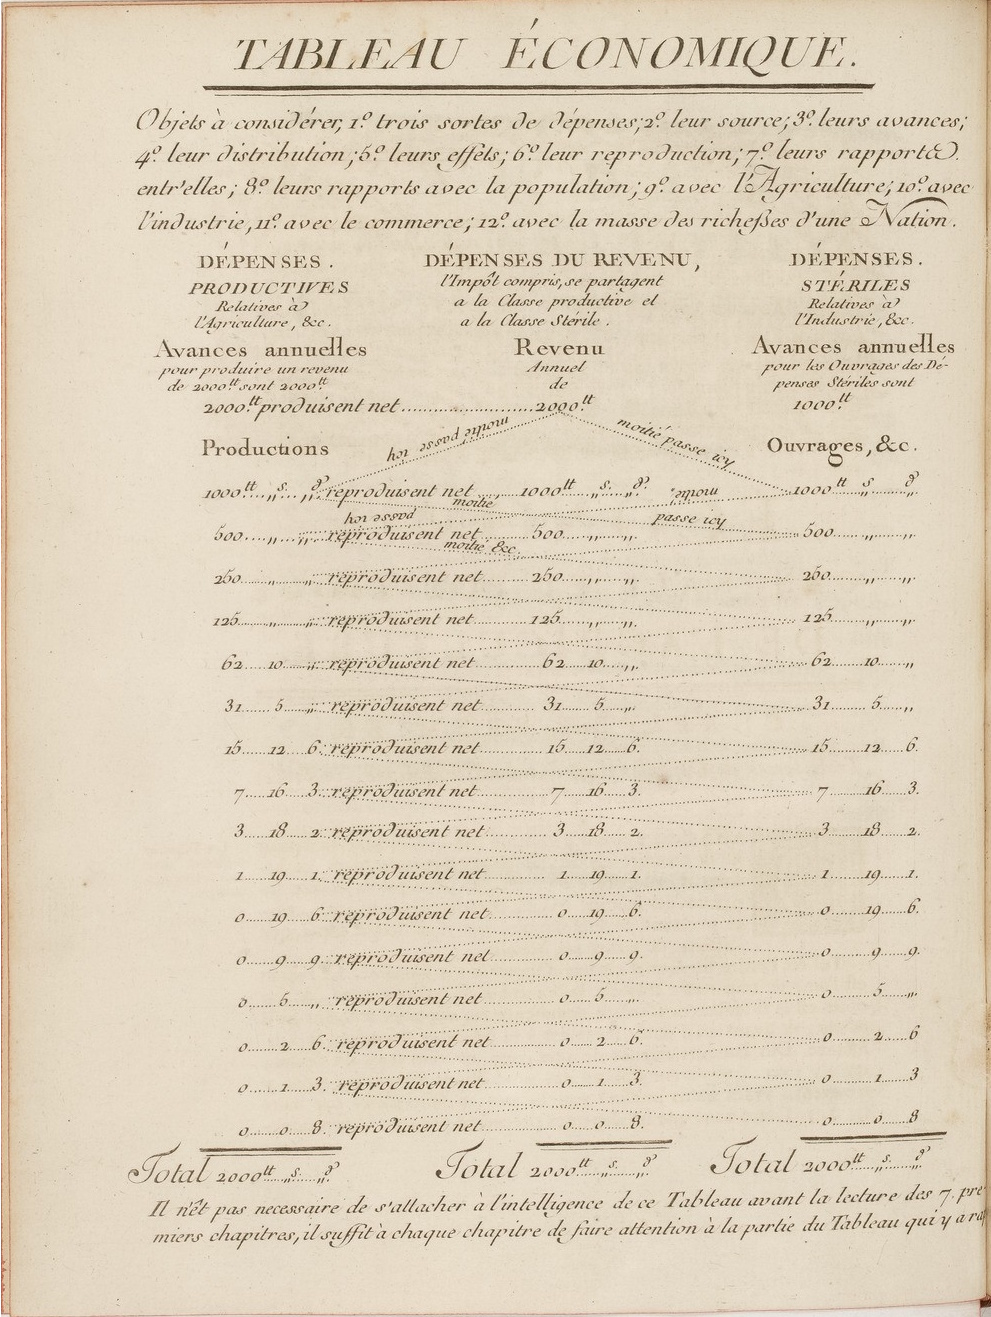 TABLEAU ÉCONOMIQUE.
Objets à considérer, 1.º trois sortes de dépenses; 2.º leur source; 3.º leurs avances;
4.º leur distribution; 5.º leurs effets; 6.º leur reproduction; 7.º leurs rapports
entr'elles; 8.º leurs rapports avec la population; 9.º avec l'Agriculture; 10.º avec
l'industrie, 11.º avec le commerce; 12.º avec la masse des richeſses d'une Nation.
DÉPENSES. DÉPENSES DU REVENU, DÉPENSES.
PRODUCTIVES l'Impôt compris, se partagent STÉRILES
Relatives à a la Classe productive et Relatives à
l'Agriculture, &c. a la Classe Stérile. l'Industrie, &c.
Avances annuelles Revenu Avances annuelles
pour produire un revenu Annuel pour les Ouvrages des Dé-
de 2000.tt sont 2000.tt de penses Stériles sont
2000.tt produisent net.......2000.tt 1000.tt
moitié passe icy moitié passe icy
Productions Ouvrages, &c.
1000tt...„s...„d reproduisent net....1000tt...„s...„d 1000tt...s...d
moitié moitié
passe icy passe icy
500....„....„ reproduisent net....500....„....„ 500....„....„
moitié &c.
250....„....„ reproduisent net....250....„....„ 250....„....„
125....„....„ reproduisent net....125....„....„ 125....„....„
62....10....„ reproduisent net....62....10....„ 62....10....„
31....5....„ reproduisent net....31....5....„ 31....5....„
15....12....6. reproduisent net....15....12....6. 15....12....6.
7....16....3. reproduisent net....7....16....3. 7....16....3.
3....18....2. reproduisent net....3....18....2. 3....18....2.
1....19....1. reproduisent net....1....19....1. 1....19....1.
0....19....6. reproduisent net....0....19....6. 0....19....6.
0....9....9. reproduisent net....0....9....9. 0....9....9.
0....5....„ reproduisent net....0....5....„ 0....5....„
0....2....6. reproduisent net....0....2....6. 0....2....6
0....1....3. reproduisent net....0....1....3. 0....1....3
0....0....8. reproduisent net....0....0....8. 0....0....8
Total 2000tt...„s...„d Total 2000tt...„s...„d Total 2000tt...„s...„d
Il n'êt pas necessaire de s'attacher à l'intelligence de ce Tableau avant la lecture des 7. pre
miers chapitres, il suffit à chaque chapitre de faire attention à la partie du Tableau qui y a